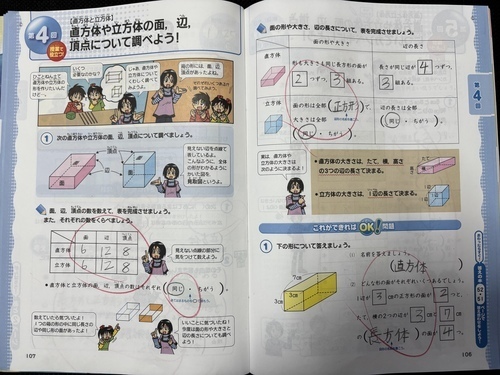 第4回
授業で役立つ!
【直方体と立方体】
直方体や立方体の面、辺、
頂点について調べよう!
1 次の直方体や立方体の面、辺、頂点について調べましょう。
頂点
辺
面
面
見えない辺を点線で
表しているよ。
こんなふうに、全体
の形がわかるように
かいた図を
見取図というよ。
面、辺、頂点の数を数えて、表を完成させましょう。
また、それぞれの数をくらべましょう。
面 辺 頂点
直方体 6 12 8
立方体 6 12 8
見えない点線の部分に
気をつけて数えよう。
直方体と立方体の面、辺、頂点の数はそれぞれ(同じ・ちがう)。
107
面の形や大きさ、辺の長さについて、表を完成させましょう。
面の形や大きさ 辺の長さ
直方体
形も大きさも同じ長方形が
2つずつ、3組ある。
長さが同じ辺が4
つずつ、3組ある。
立方体
面の形は全部(正方形)で、
大きさは全部
(同じ・ちがう)。
辺の長さは全部
(同じ・ちがう)。
第4回
実は、直方体や
立方体の大きさは
次のように決まるよ!
直方体の大きさは、たて、横、高さ
の3つの辺の長さで決まる。
立方体の大きさは、1辺の長さで決まる。
これができればOK!問題
1 下の形について答えましょう。
7cm
3cm
3cm
(1) 名前を答えましょう。
(直方体)
(2) どんな形の面がそれぞれいくつあるでしょう。
1辺が3cmの正方形の面が2つと、
たて、横の2つの辺が3cmと7cm
の(長方形)の面が4つ。
106